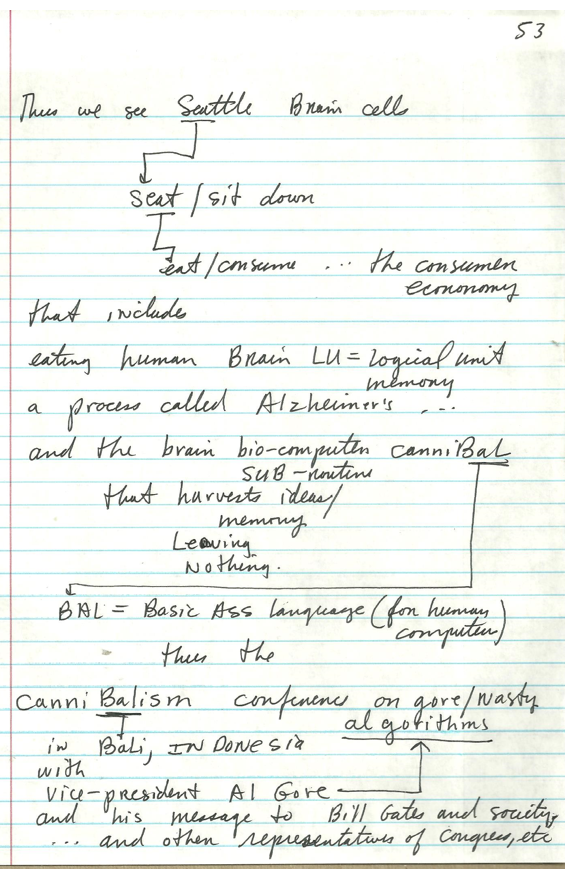 53
Thus we see Seattle Brain cells
Seat / sit down
eat/consume ... the consumer
econonomy
that includes
eating human Brain LU = logical unit
memory
a process called Alzheimer's ...
and the brain bio-computer canniBaL
SUB-routine
that harvests ideas/
memory
Leaving
Nothing.
BAL = Basic Ass language (for human
computer)
thus the
canniBalism conference on gore/Nasty
al gorithms
in Bali, INDOnesia
with
vice-president Al Gore
and his message to Bill Gates and society,
... and other representatives of Congress, etc